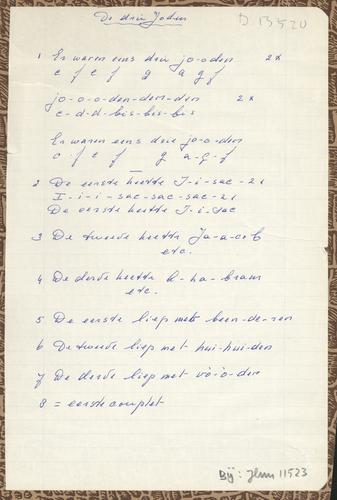 De drie Joden
D 13520
1 Er waren eens drie jo-o-den 2x
c f c f g a g f
jo-o-o-den-den-den 2x
c-d-d-bis-bis-bis
Er waren eens drie jo-o-den
c f c f g a-g-f
2 De eerste heette I-i-sac-2x
I-i-i-sac-sac-sac-2x
De eerste heette I-i-sac
3 De tweede heette Ja-a-co-b
etc.
4 De derde heette A-ha-bram
etc.
5 De eerste liep met been-de-ren
6 De tweede liep met hui-hui-den
7 De derde liep met vo-o-den
8 = eerste couplet
Bij: 11523